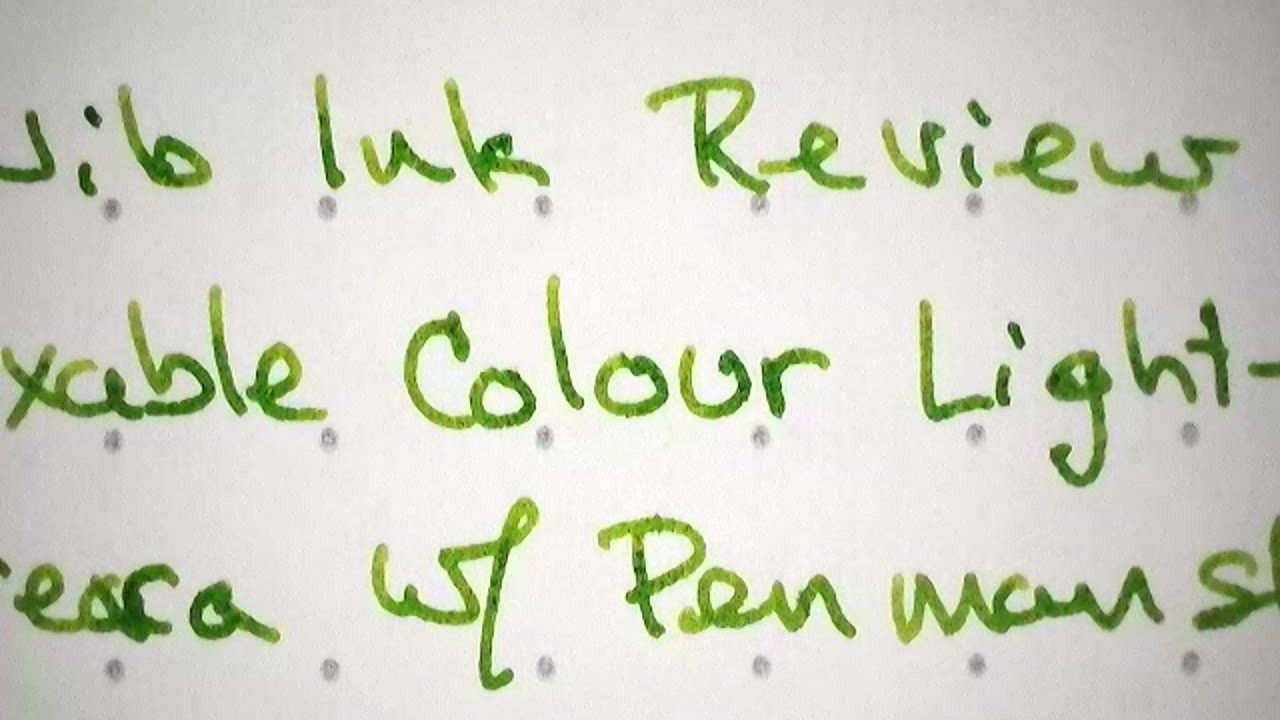 nib Ink Review
xable Colour Light-
w/ Penmansh